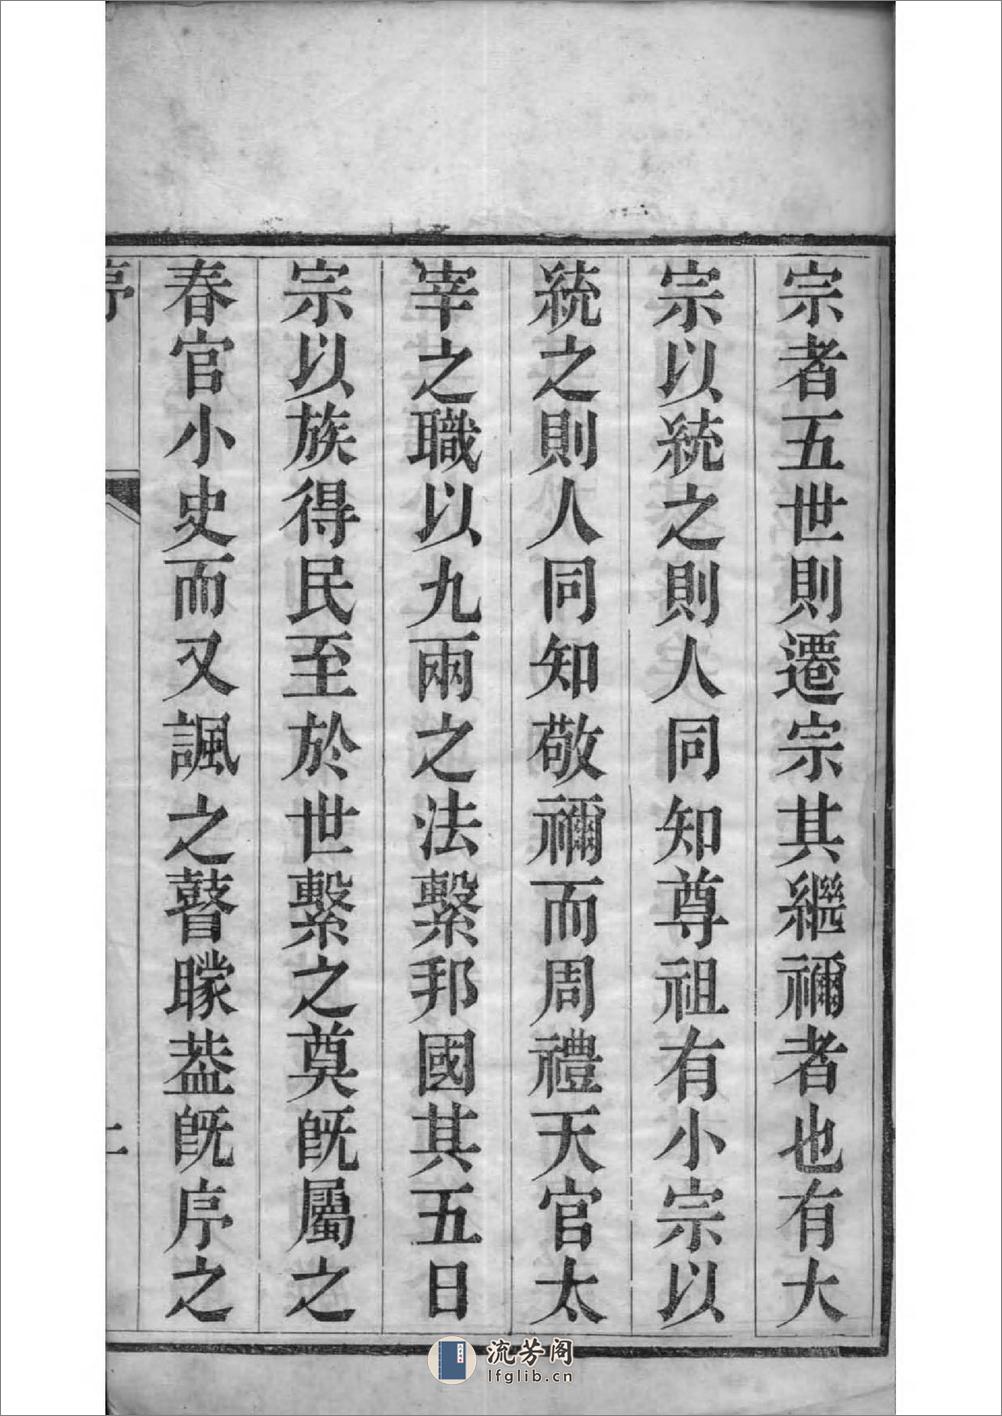 宗者五世則遷宗其繼禰者也有大
宗以統之則人同知尊祖有小宗以
統之則人同知敬禰而周禮天官太
宰之職以九兩之法繫邦國其五日
宗以族得民至於世繫之奠旣屬之
春官小史而又諷之瞽矇葢旣序之
序
流芳阁
lfglib.cn